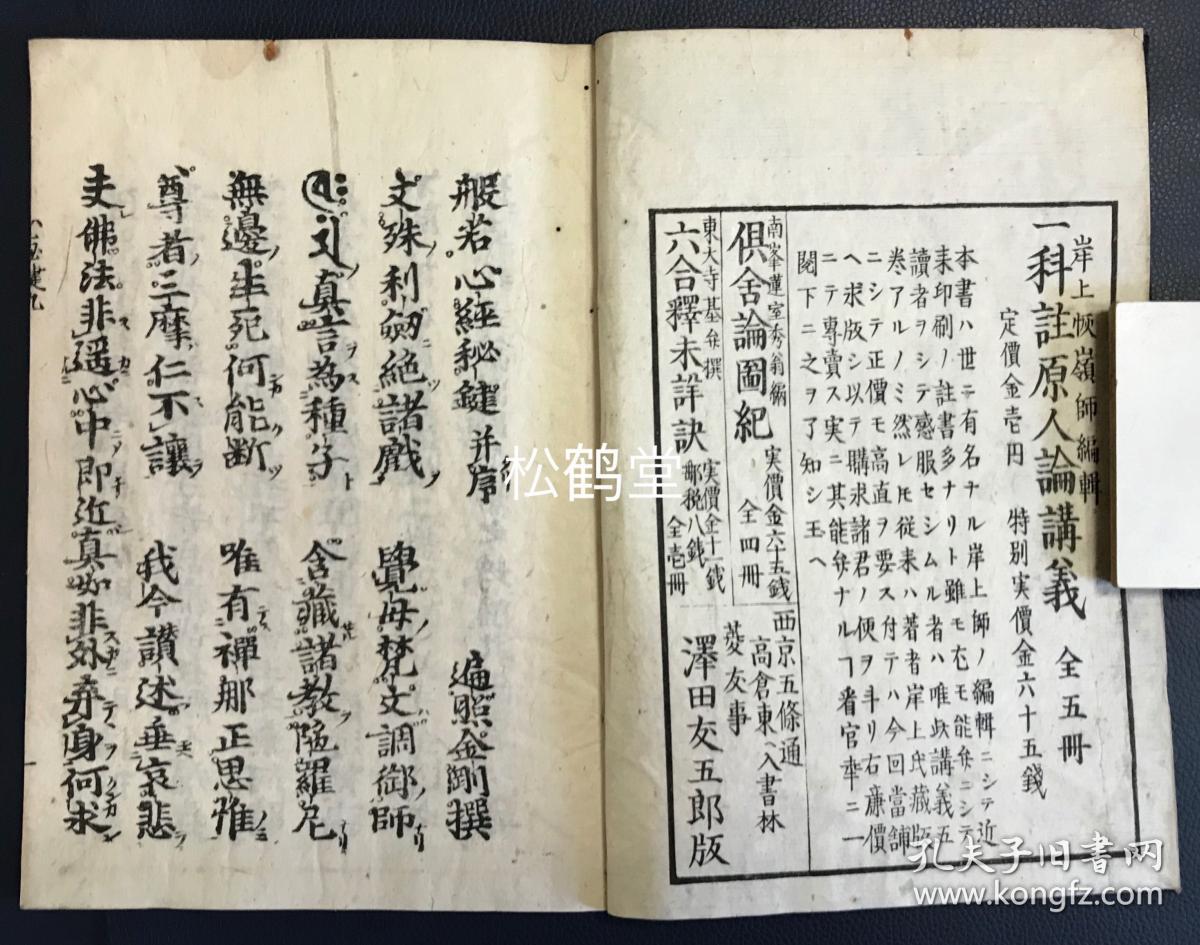 岸上恢嶺師編輯
一科註原人論講義 全五冊
定價金壱円 特別実價金六十五錢
本書ハ世ニ有名ナル岸上師ノ編輯ニシテ近
来印刷ノ註書多ナリト雖モ尤モ能弁ニシテ
讀者ヲシテ感服セシムル者ハ唯此講義五
巻アルノミ然レ𪜈従来ハ著者岸上氏藏版
ニシテ正價モ高直ヲ要ス付テハ今回當舗
ヘ求版シ以テ購求諸君ノ便ヲ斗リ右廉價
ニテ専賣ス実ニ其能弁ナルヿ看官幸ニ一
閲下ニ之ヲ了知シ玉ヘ
南峯蓮室秀翁編
俱舍論圖紀 実價金六十五錢 全四冊
東大寺基弁撰
六合釋未詳訣 実價金十一錢 郵税八錢 全壱冊
西京五條通
高倉東ヘ入書林
菱友事
澤田友五郎版
般若心經秘鍵 并序
遍照金剛撰
文殊利劔絶諸戲 覺母梵文調御師
真言為種子 含藏諸教陁羅尼
無邊生死何能断 唯有禪那正思惟
尊者三摩仁不讓 我今讃述垂哀悲
夫佛法非遥心中即近真如非外弃身何求
松鹤堂
孔夫子旧书网
www.kongfz.com